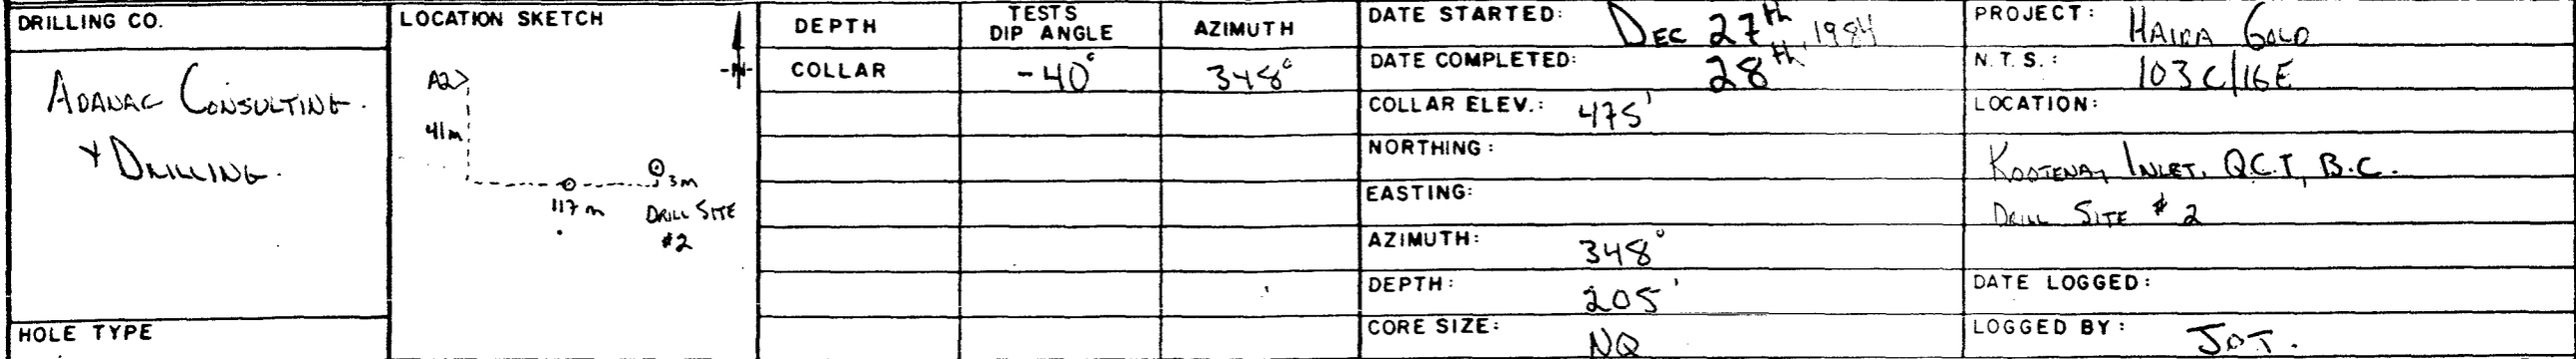 DRILLING CO.
ADANAC CONSULTING.
+ DRILLING.
HOLE TYPE
LOCATION SKETCH
-N-
A2
41m
3m
117 m
DRILL SITE
#2
DEPTH TESTS DIP ANGLE AZIMUTH
COLLAR -40° 348°
DATE STARTED: DEC 27th, 1984
DATE COMPLETED: 28th
COLLAR ELEV.: 475'
NORTHING:
EASTING:
AZIMUTH: 348°
DEPTH: 205'
CORE SIZE: NQ
PROJECT: HAIDA GOLD
N.T.S.: 103C/16E
LOCATION:
KOOTENAY INLET, Q.C.I, B.C.
DRILL SITE # 2
DATE LOGGED:
LOGGED BY: